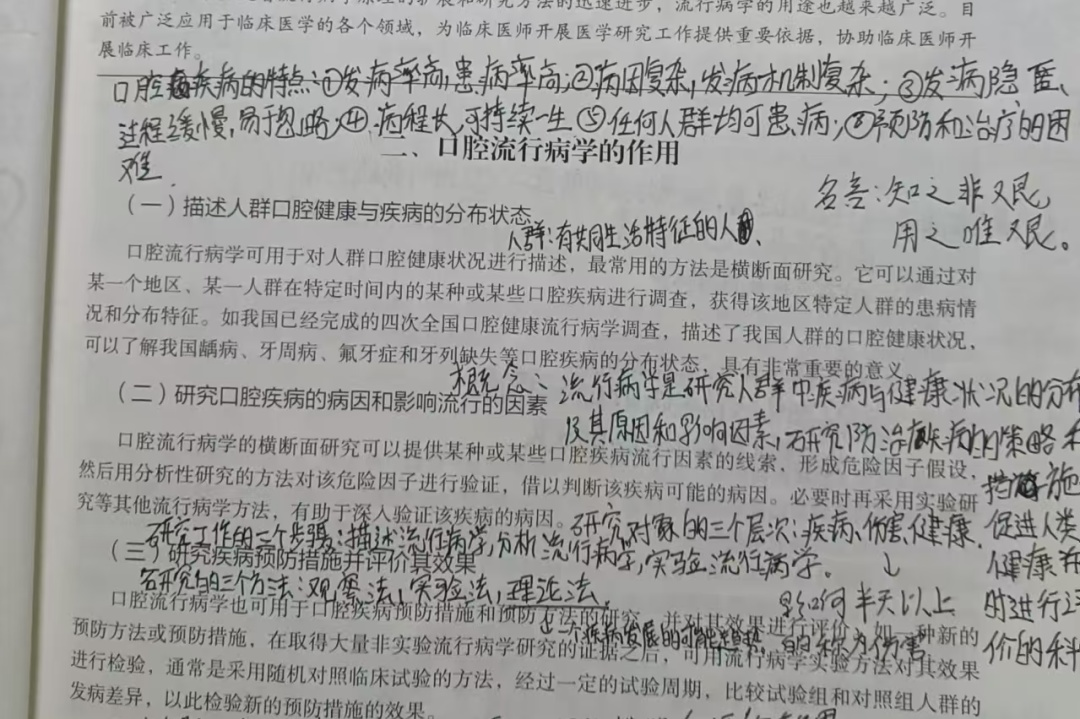 前被广泛应用于临床医学的各个领域，为临床医师开展医学研究工作提供重要依据，协助临床医师开
展临床工作。
口腔疾病的特点：①发病率高，患病率高；②病因复杂，发病机制复杂；③发病隐匿、
过程缓慢，易于忽略；④病程长，可持续一生⑤任何人群均可患病；⑥预防和治疗的困
难.
二、口腔流行病学的作用
名言：知之非艰，
用之唯艰。
（一）描述人群口腔健康与疾病的分布状态
人群：有共同生活特征的人
口腔流行病学可用于对人群口腔健康状况进行描述，最常用的方法是横断面研究。它可以通过对
某一个地区、某一人群在特定时间内的某种或某些口腔疾病进行调查，获得该地区特定人群的患病情
况和分布特征。如我国已经完成的四次全国口腔健康流行病学调查，描述了我国人群的口腔健康状况，
可以了解我国龋病、牙周病、氟牙症和牙列缺失等口腔疾病的分布状态，具有非常重要的意义。
概念：流行病学是研究人群中疾病与健康状况的分布
（二）研究口腔疾病的病因和影响流行的因素
及其原因和影响因素，研究防治疾病的策略和
措施
促进人类
健康并
时进行评
价的科
口腔流行病学的横断面研究可以提供某种或某些口腔疾病流行因素的线索，形成危险因子假设，
然后用分析性研究的方法对该危险因子进行验证，借以判断该疾病可能的病因。必要时再采用实验研
究等其他流行病学方法，有助于深入验证该疾病的病因。
研究对象的三个层次：疾病、伤害、健康.
研究工作的三个步骤：描述流行病学，分析流行病学，实验流行病学。
（三）研究疾病预防措施并评价其效果
研究的三个方法：观察法，实验法，理论法。
影响半天以上
的称为伤害
口腔流行病学也可用于口腔疾病预防措施和预防方法的研究，并对其效果进行评价。如一种新的
疾病发展的可能趋势
预防方法或预防措施，在取得大量非实验流行病学研究的证据之后，可用流行病学实验方法对其效果
进行检验，通常是采用随机对照临床试验的方法，经过一定的试验周期，比较试验组和对照组人群的
发病差异，以此检验新的预防措施的效果。